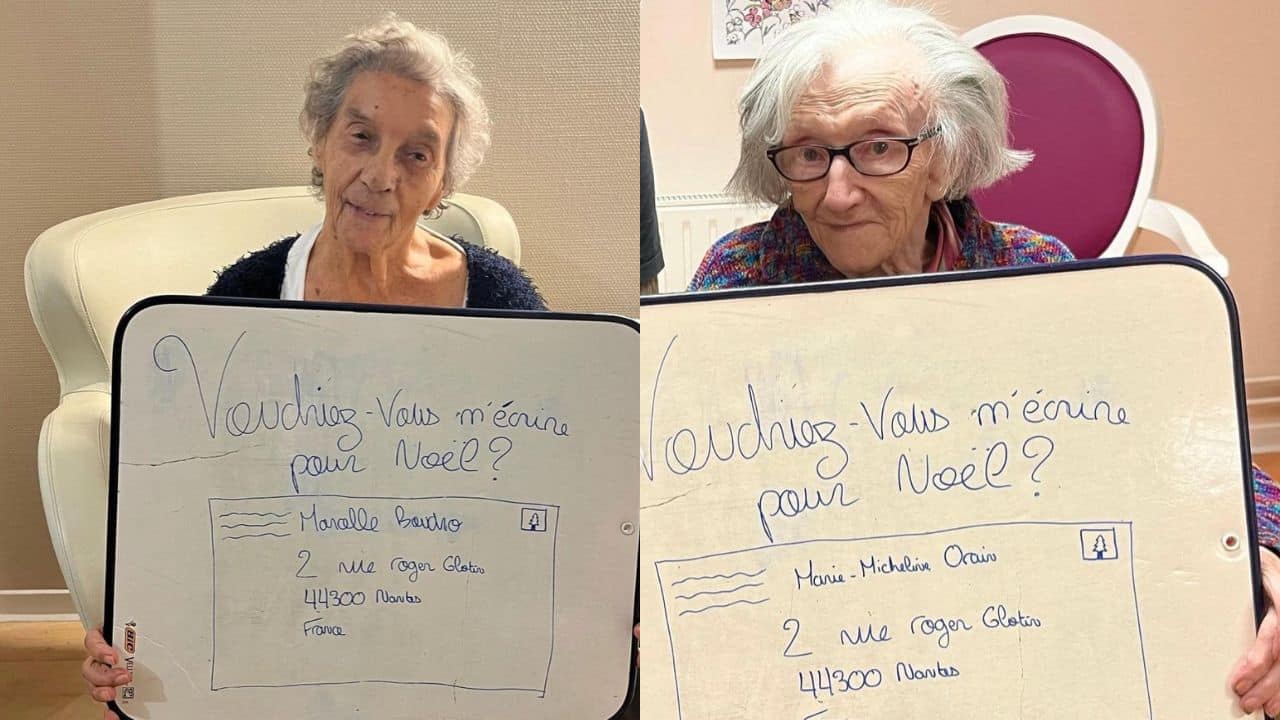 Voudriez-Vous m'écrire
pour Noël?
Marcelle Baudro
2 rue roger Glotin
44300 Nantes
France
BIC
Voudriez-Vous m'écrire
pour Noël?
Marie-Micheline Orain
2 rue roger Glotin
44300 Nantes